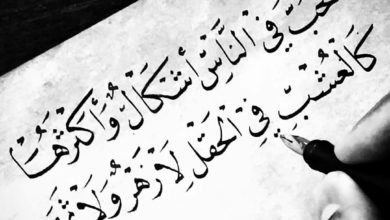 حبّ في النَّاسِ أشْكَالٌ وَأكْثَرُهَا
كَالْعُشْبِ فِي الْحَقْلِ لَا زَهْرٌ وَلَا ثَمَرُ